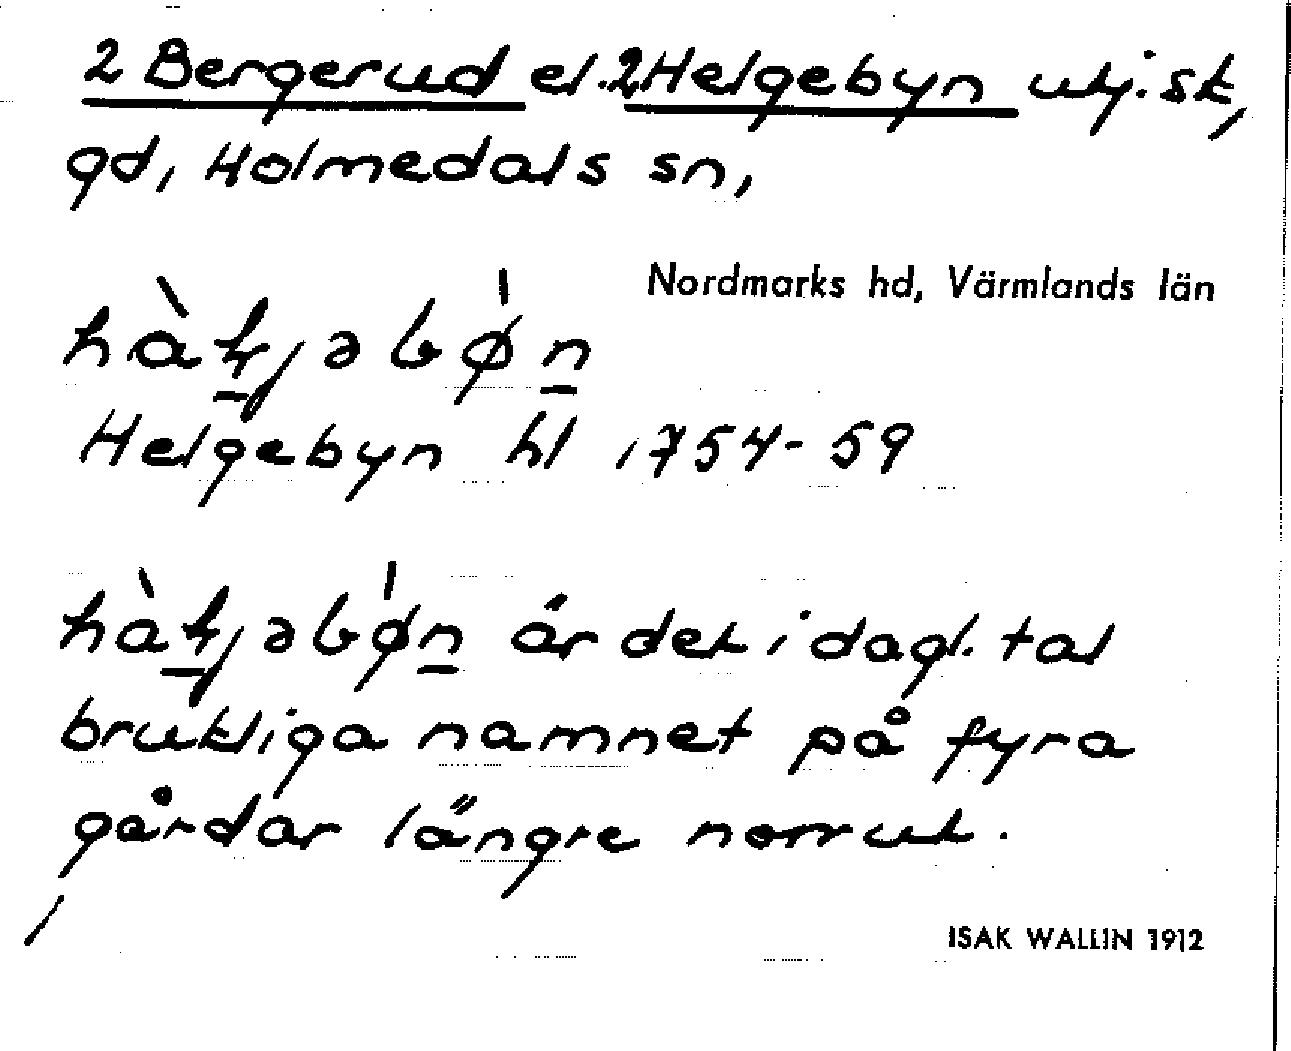 2 Bergerud el. 2 Helgebyn utj. sk,
gd, Holmedals sn,
Nordmarks hd, Värmlands län
Helgebyn hl 1754-59
är det i dagl. tal
brukliga namnet på fyra
gårdar längre norrut.
ISAK WALLIN 1912